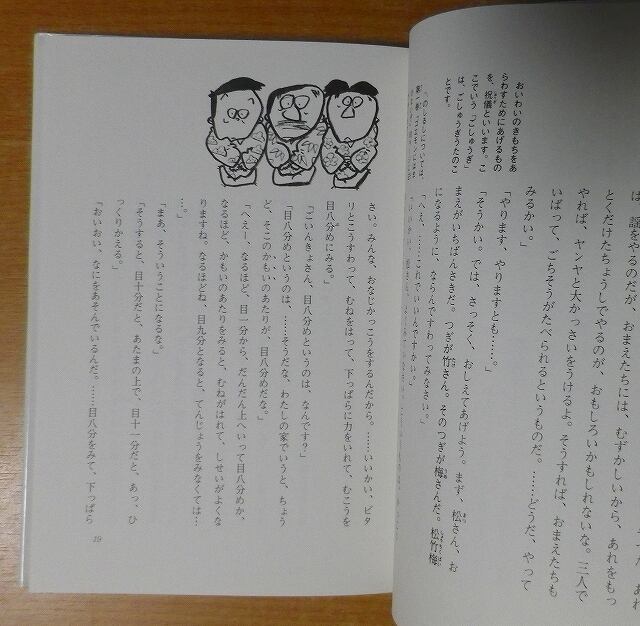 は、謡をやるのだが、おまえたちには、むずかしいから、あれをもっ
とくだけたちょうしでやるのが、おもしろいかもしれないな。三人で
やれば、ヤンヤと大かっさいをうけるよ。そうすれば、おまえたちも
いばって、ごちそうがたべられるというものだ。……どうだ、やって
みるかい。」
「やります、やりますとも……。」
「そうかい。では、さっそく、おしえてあげよう。まず、松さん、お
まえがいちばんさきだ。つぎが竹さん。そのつぎが梅さんだ。松竹梅
になるように、ならんですわってみなさい。」
「へえ、……これでいいんですかい。」
おいわいのきもちをあ
らわすためにあげるもの
を、祝儀といいます。こ
こでいう「ごしゅうぎ」
は、ごしゅうぎうたのこ
とです。
さい。みんな、おなじかっこうをするんだから。……いいかい、ピタ
リとこうすわって、むねをはって、下っぱらに力をいれて、むこうを
目八分めにみる。」
「ごいんきょさん、目八分めというのは、なんです？」
「目八分めというのは、……そうだな、わたしの家でいうと、ちょう
ど、そこのかもいのあたりが、目八分めだな。」
「へえー、なるほど、目一分から、だんだん上へいって目八分めか、
なるほど、かもいのあたりをみると、むねがはれて、しせいがよくな
りますね。なるほどね、目九分となると、てんじょうをみなくては…
…。」
「まあ、そういうことになるな。」
「そうすると、目十分だと、あたまの上で、目十一分だと、あっ、ひ
っくりかえる。」
「おいおい、なにをあそんでいるんだ。……目八分をみて、下っぱら
19